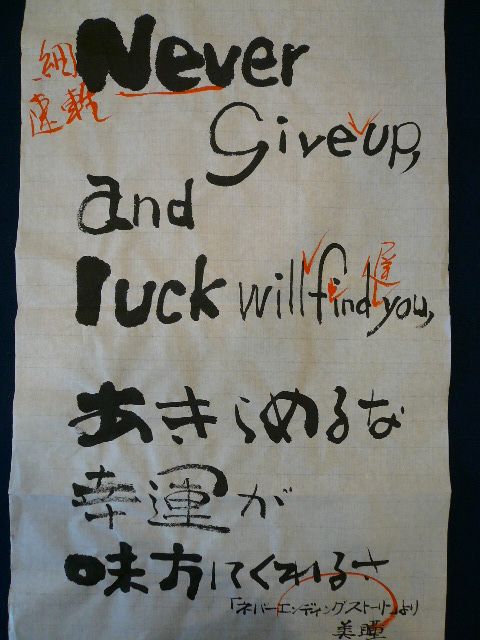 Never
Give up,
and
luck will find you,
あきらめるな
幸運が
味方してくれるさ
「ネバーエンディングストーリー」より
美曈